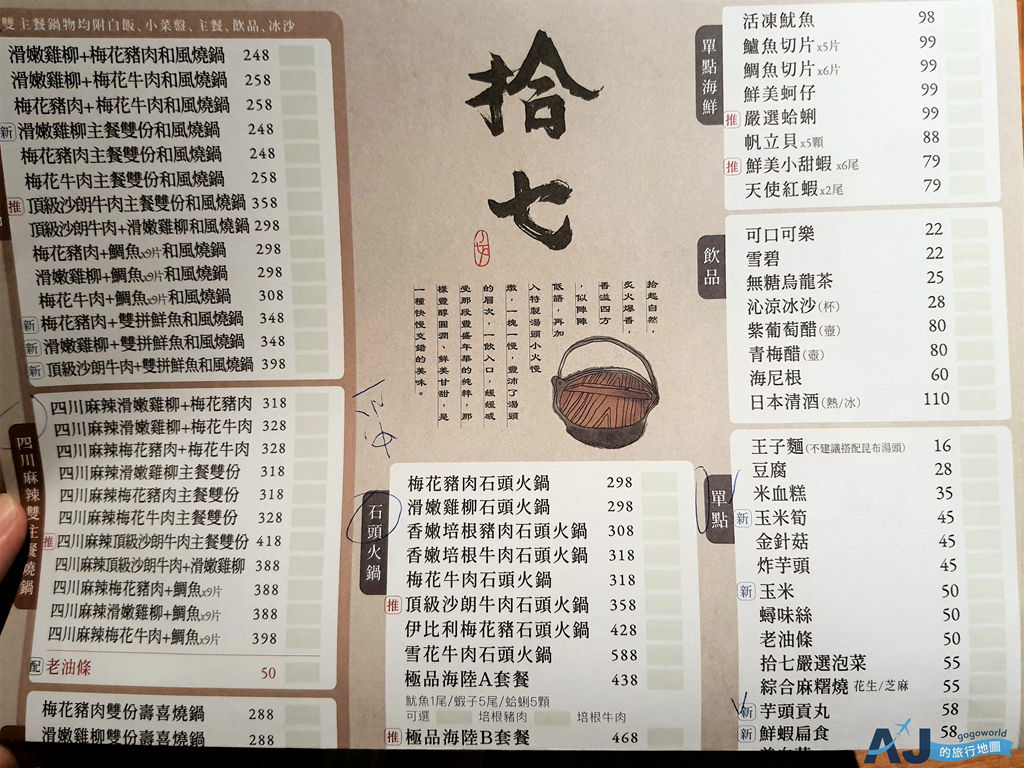 雙主餐鍋物均附白飯、小菜盤、主餐、飲品、冰沙
滑嫩雞柳+梅花豬肉和風燒鍋 248
滑嫩雞柳+梅花牛肉和風燒鍋 258
梅花豬肉+梅花牛肉和風燒鍋 258
新 滑嫩雞柳主餐雙份和風燒鍋 248
梅花豬肉主餐雙份和風燒鍋 248
梅花牛肉主餐雙份和風燒鍋 258
推 頂級沙朗牛肉主餐雙份和風燒鍋 358
頂級沙朗牛肉+滑嫩雞柳和風燒鍋 298
梅花豬肉+鯛魚x9片和風燒鍋 298
滑嫩雞柳+鯛魚x9片和風燒鍋 298
梅花牛肉+鯛魚x9片和風燒鍋 308
新 梅花豬肉+雙拼鮮魚和風燒鍋 348
新 滑嫩雞柳+雙拼鮮魚和風燒鍋 348
新 頂級沙朗牛肉+雙拼鮮魚和風燒鍋 398
四川麻辣雙主餐燒鍋
四川麻辣滑嫩雞柳+梅花豬肉 318
四川麻辣滑嫩雞柳+梅花牛肉 328
四川麻辣梅花豬肉+梅花牛肉 328
四川麻辣滑嫩雞柳主餐雙份 318
四川麻辣梅花豬肉主餐雙份 318
四川麻辣梅花牛肉主餐雙份 328
推 四川麻辣頂級沙朗牛肉主餐雙份 418
四川麻辣頂級沙朗牛肉+滑嫩雞柳 388
四川麻辣梅花豬肉+鯛魚x9片 388
四川麻辣滑嫩雞柳+鯛魚x9片 388
四川麻辣梅花牛肉+鯛魚x9片 398
配 老油條 50
梅花豬肉雙份壽喜燒鍋 288
滑嫩雞柳雙份壽喜燒鍋 288
拾七
拾起自然，
炙火爆香，
香溢四方
，似陣陣
低語，再加
入特製湯頭小火慢
燉，一塊一慢，豐沛了湯頭
的層次，一飲入口，緩緩感
受那段豐盛年華的純粹，那
樣豐醇圓潤、鮮美甘甜，是
一種快慢交錯的美味。
石頭火鍋
梅花豬肉石頭火鍋 298
滑嫩雞柳石頭火鍋 298
香嫩培根豬肉石頭火鍋 308
香嫩培根牛肉石頭火鍋 318
梅花牛肉石頭火鍋 318
推 頂級沙朗牛肉石頭火鍋 358
伊比利梅花豬石頭火鍋 428
雪花牛肉石頭火鍋 588
極品海陸A套餐 438
魷魚1尾/蝦子5尾/蛤蜊5顆
可選 培根豬肉 培根牛肉
推 極品海陸B套餐 468
單點海鮮
活凍魷魚 98
鱸魚切片x5片 99
鯛魚切片x6片 99
鮮美蚵仔 99
推 嚴選蛤蜊 99
帆立貝x5顆 88
推 鮮美小甜蝦x6尾 79
天使紅蝦x2尾 79
飲品
可口可樂 22
雪碧 22
無糖烏龍茶 25
沁涼冰沙(杯) 28
紫葡萄醋(壺) 80
青梅醋(壺) 80
海尼根 60
日本清酒(熱/冰) 110
單點
王子麵(不建議搭配昆布湯頭) 16
豆腐 28
米血糕 35
新 玉米筍 45
金針菇 45
炸芋頭 45
新 玉米 50
蟳味絲 50
老油條 50
拾七嚴選泡菜 55
綜合麻糬燒 花生/芝麻 55
新 芋頭貢丸 58
新 鮮蝦扁食 58
AJ gogoworld
的旅行地圖